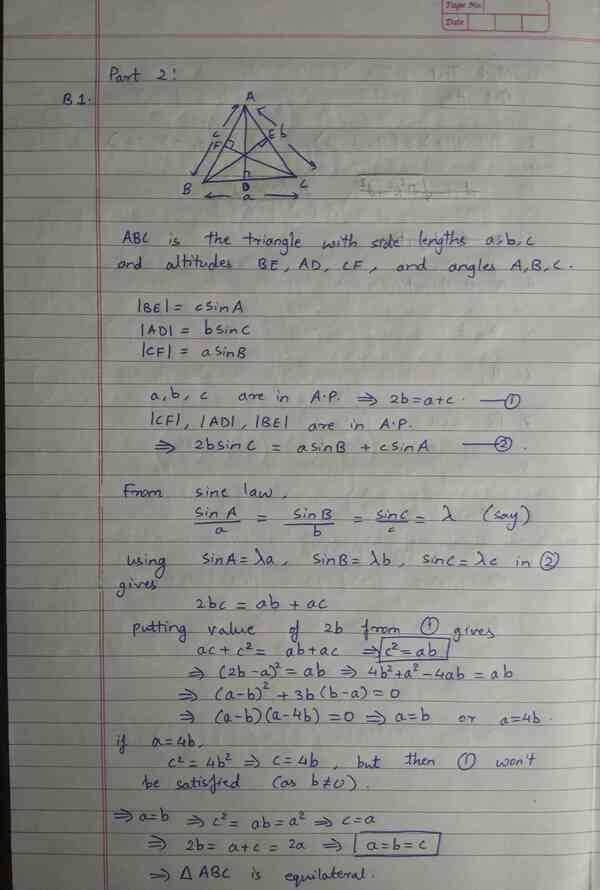 Page No.
Date
Part 2:
B1.
A
c
F
E
b
B
D
C
a
ABC is the triangle with side lengths a,b,c
and altitudes BE, AD, CF, and angles A,B,C.
|BE| = c sin A
|AD| = b sin C
|CF| = a sin B
a, b, c are in A.P. ⇒ 2b=a+c. —①
|CF|, |AD|, |BE| are in A.P.
⇒ 2b sin C = a sin B + c sin A —②.
From sine law,
sin A / a = sin B / b = sin C / c = λ (say)
using sin A = λa, sin B = λb, sin C = λc in ②
gives
2bc = ab + ac
putting value of 2b from ① gives
ac + c² = ab + ac ⇒ c² = ab
⇒ (2b-a)² = ab ⇒ 4b²+a²-4ab = ab
⇒ (a-b)² + 3b(b-a) = 0
⇒ (a-b)(a-4b) = 0 ⇒ a=b or a=4b.
if a=4b,
c² = 4b² ⇒ c = 4b, but then ① won't
be satisfied (as b≠0).
⇒ a=b ⇒ c² = ab = a² ⇒ c = a
⇒ 2b = a+c = 2a ⇒ a=b=c
⇒ △ ABC is equilateral.